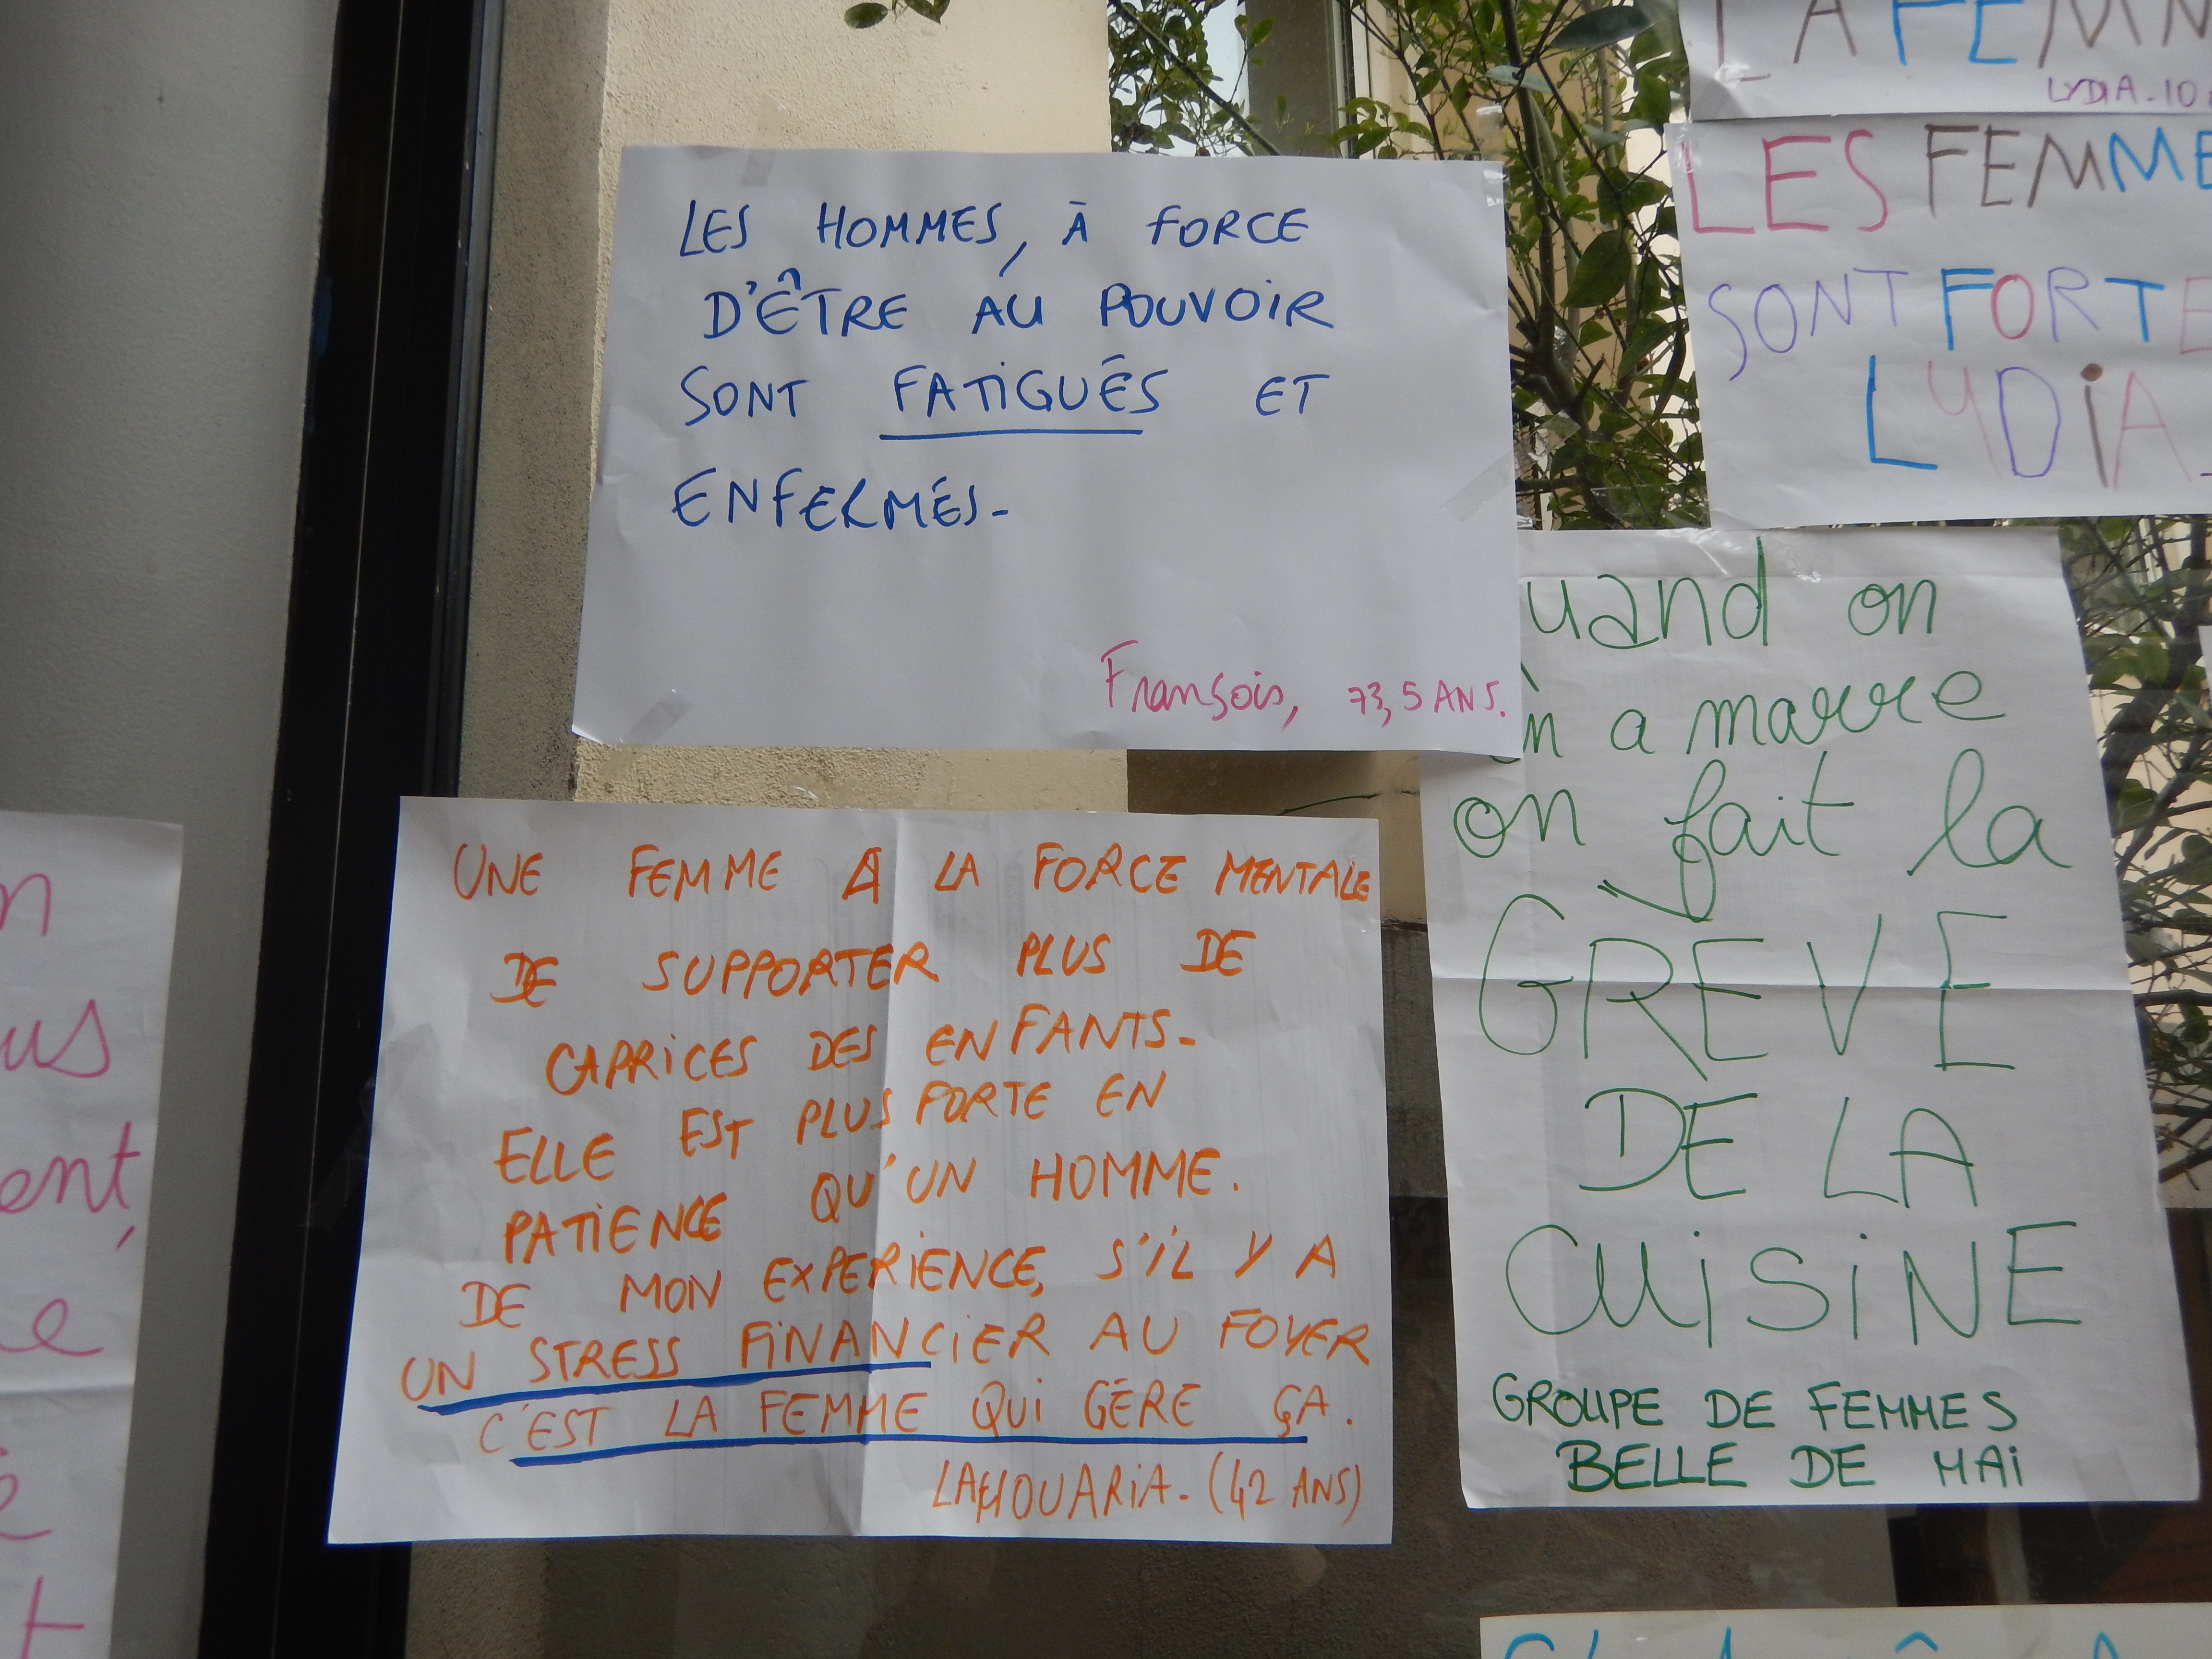 LES HOMMES, À FORCE
D'ÊTRE AU POUVOIR
SONT FATIGUÉS ET
ENFERMÉS-
François, 73,5 ANS.
UNE FEMME A LA FORCE MENTALE
DE SUPPORTER PLUS DE
CAPRICES DES ENFANTS-
ELLE EST PLUS FORTE EN
PATIENCE QU'UN HOMME.
DE MON EXPERIENCE, S'IL Y A
UN STRESS FINANCIER AU FOYER
C'EST LA FEMME QUI GÈRE ÇA.
LAHOUARIA-(42 ANS)
LA FEMM
LYDIA-10
LES FEMME
SONT FORTE
LYDIA-
uand on
n a marre
on fait la
GREVE
DE LA
CUISINE
GROUPE DE FEMMES
BELLE DE MAI
n
us
ent,
e
t